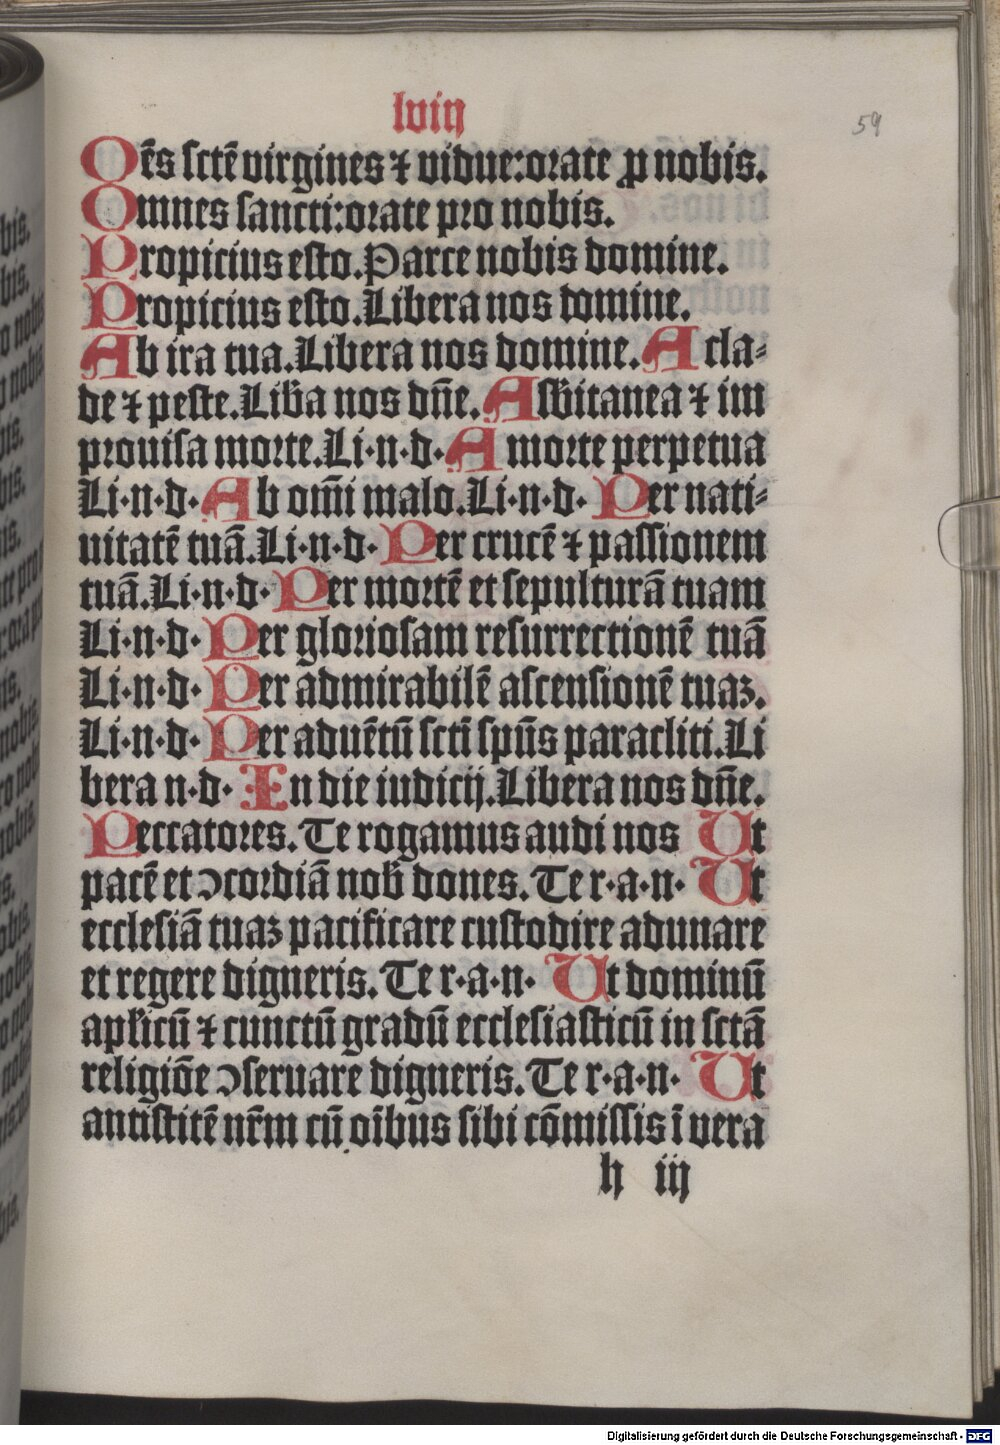 lviij
59
Oēs sctē virgines ⁊ vidue: orate ꝓ nobis.
Omnes sancti: orate pro nobis.
Propicius esto. Parce nobis domine.
Propicius esto. Libera nos domine.
Ab ira tua. Libera nos domine. A cla⸗
de ⁊ peste. Lib̄a nos dn̄e. A sb̄itanea ⁊ im
prouisa morte. Li·n·d· A morte perpetua
Li·n·d· Ab om̄i malo. Li·n·d· Per nati⸗
uitatē tuā. Li·n·d· Per crucē ⁊ passionem
tuā. Li·n·d· Per mortē et sepulturā tuam
Li·n·d· Per gloriosam resurrectionē tuā
Li·n·d· Per admirabilē ascensionē tuaꝫ.
Li·n·d· Per aduētū scti sp̄us paracliti. Li
bera n·d· In die iudicij. Libera nos dn̄e.
Peccatores. Te rogamus audi nos Ut
pacē et ↄcordiā nob̄ dones. Te r·a·n· Ut
ecclesiā tuaꝫ pacificare custodire adunare
et regere digneris. Te r·a·n· Ut dominū
apl̄icū ⁊ cunctū gradū ecclesiasticū in sctā
religiōe ↄseruare digneris. Te r·a·n· Ut
antistitē nr̄m cū oībus sibi cōmissis ī vera
h iij
Digitalisierung gefördert durch die Deutsche Forschungsgemeinschaft - DFG